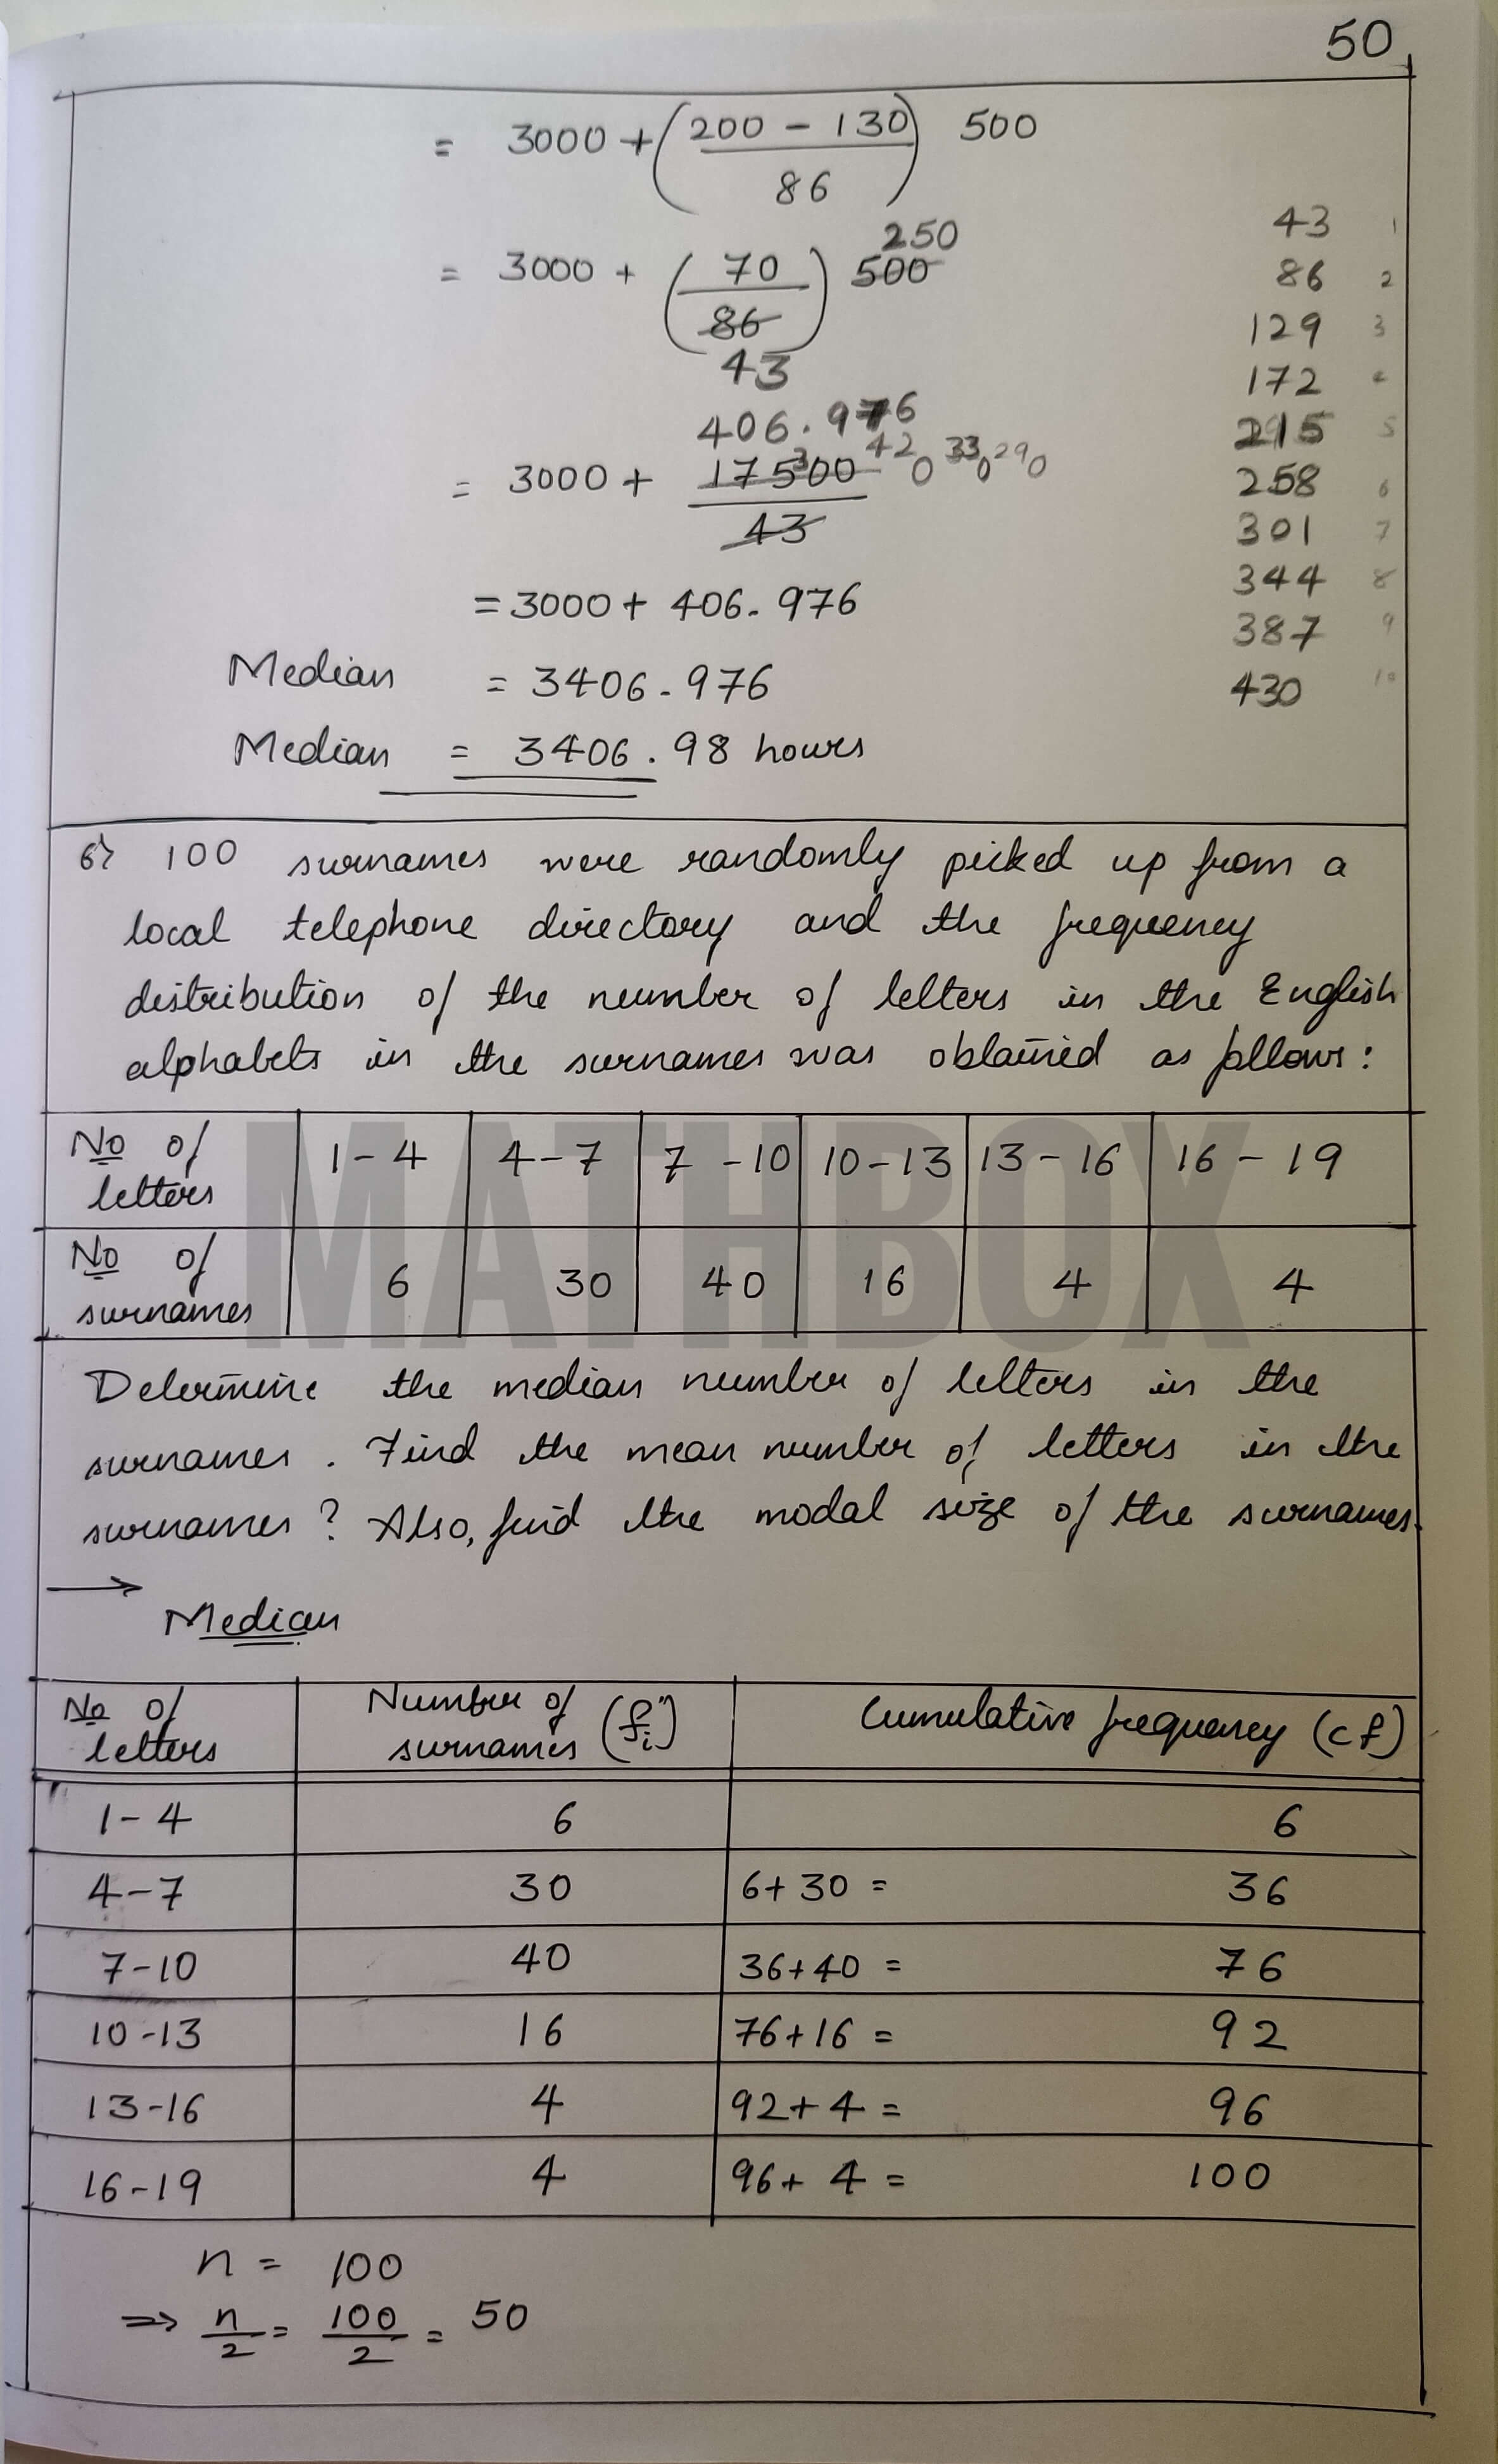 50
= 3000 + (200 - 130 / 86) 500
250
= 3000 + (70 / 86) 500
43
406.976
= 3000 + 17500 / 43
3 42 0 33 0 29 0
= 3000 + 406.976
Median = 3406.976
Median = 3406.98 hours
43 1
86 2
129 3
172 4
215 5
258 6
301 7
344 8
387 9
430 10
6) 100 surnames were randomly picked up from a
local telephone directory and the frequency
distribution of the number of letters in the English
alphabets in the surnames was obtained as follows:
No of letters 1-4 4-7 7-10 10-13 13-16 16-19
No of surnames 6 30 40 16 4 4
MATHBOX
Determine the median number of letters in the
surnames. Find the mean number of letters in the
surnames? Also, find the modal size of the surnames.
→
Median
No of letters Number of surnames (fi) Cumulative frequency (cf)
1-4 6 6
4-7 30 6+30 = 36
7-10 40 36+40 = 76
10-13 16 76+16 = 92
13-16 4 92+4 = 96
16-19 4 96+4 = 100
n = 100
⇒ n/2 = 100/2 = 50